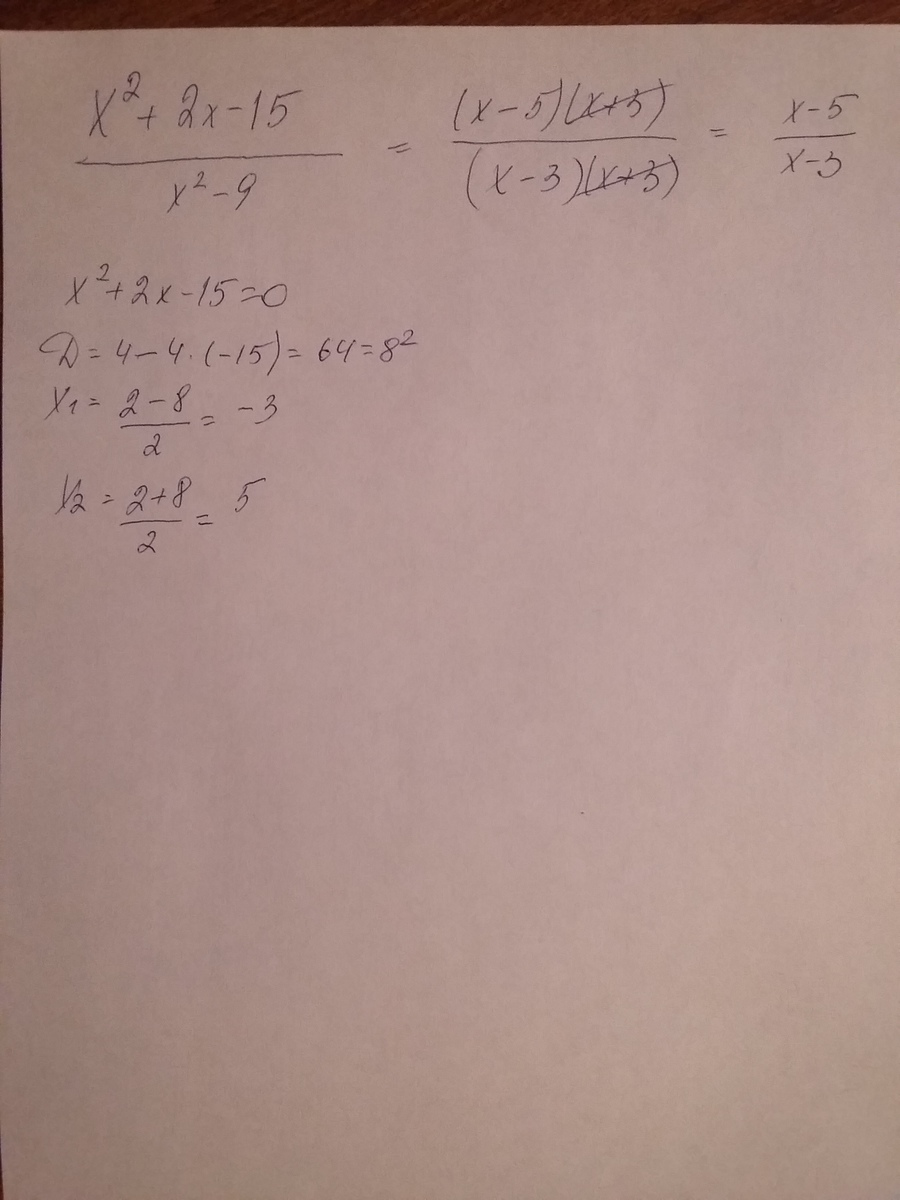 x² + 2x - 15 / x² - 9 = (x - 5)(x + 3) / (x - 3)(x + 3) = x - 5 / x - 3
x² + 2x - 15 = 0
D = 4 - 4 · (-15) = 64 = 8²
x₁ = 2 - 8 / 2 = -3
x₂ = 2 + 8 / 2 = 5